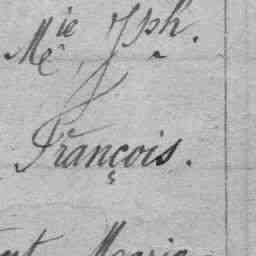 M.ie Jph.
François.
Marie